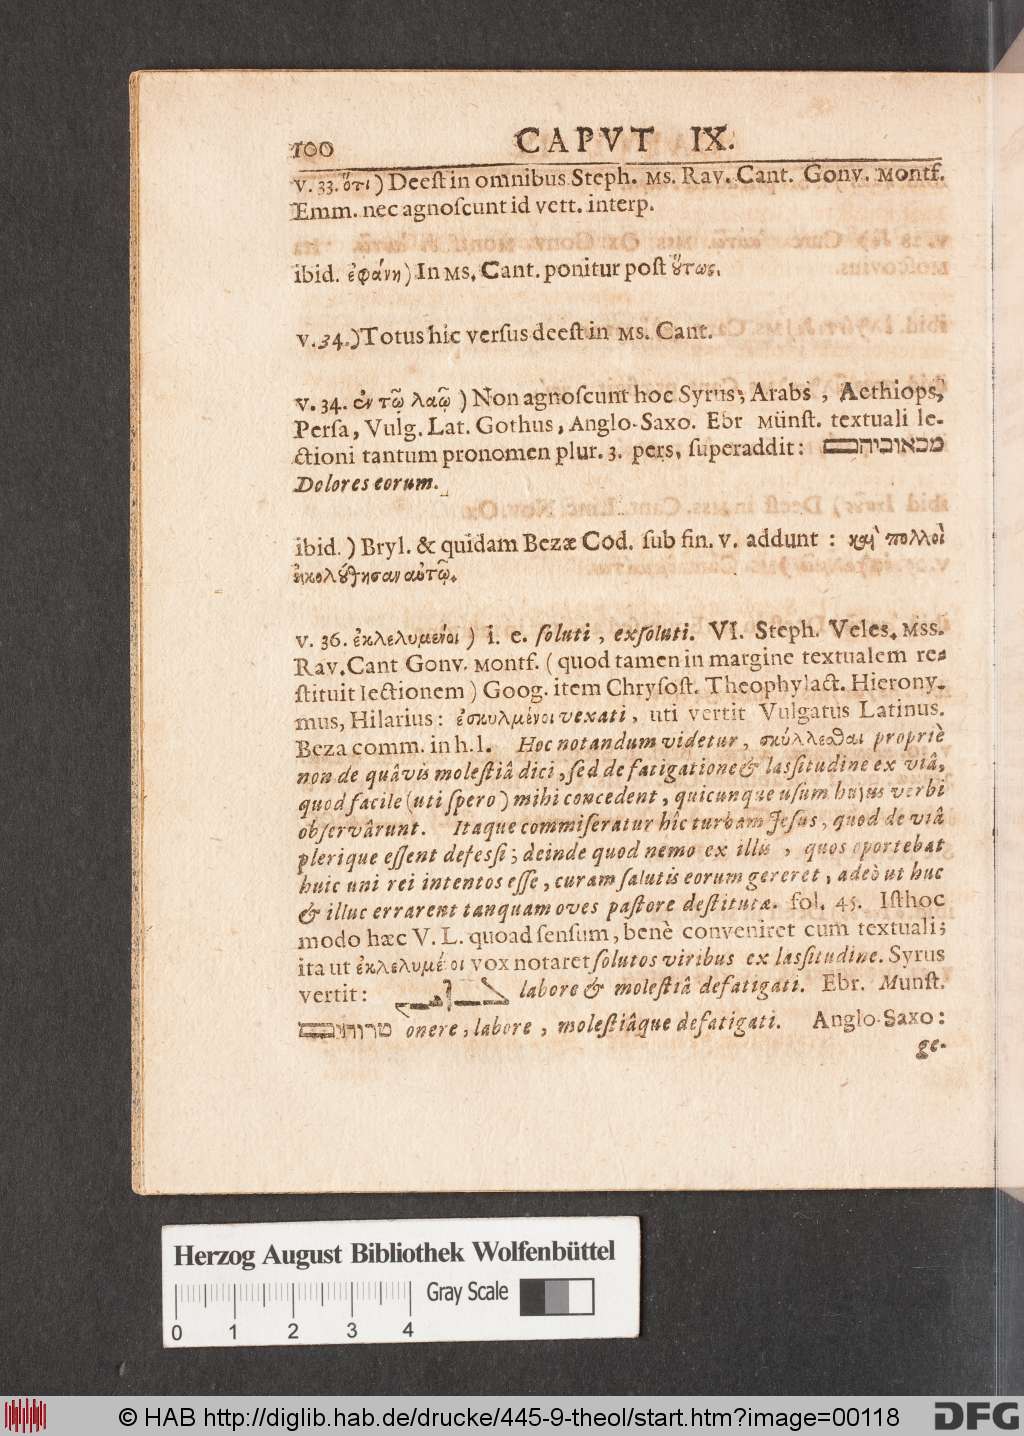 100 CAPVT IX.
v. 33. ὅτι ) Deeſt in omnibus Steph. Ms. Rav. Cant. Gonv. Montf.
Emm. nec agnoſcunt id vett. interp.
ibid. ἐφάνη ) In Ms. Cant. ponitur poſt ȣ̔́τως.
v. 34. ) Totus hic verſus deeſt in Ms. Cant.
v. 34. ἐν τῷ λαῷ ) Non agnoſcunt hoc Syrus, Arabs , Aethiops,
Perſa, Vulg. Lat. Gothus, Anglo-Saxo. Ebr Münſt. textuali le-
ctioni tantum pronomen plur. 3. perſ, ſuperaddit: מכאוביהם
Dolores eorum.
ibid. ) Bryl. & quidam Bezæ Cod. ſub fin. v. addunt : καὶ πολλοὶ
ἠκολȣ́θησαν αὐτῷ.
v. 36. ἐκλελυμένοι ) i. e. ſoluti , exſoluti. VI. Steph. Veles. Mss.
Rav. Cant Gonv. Montf. ( quod tamen in margine textualem re-
ſtituit lectionem ) Goog. item Chryſoſt. Theophylact. Hierony-
mus, Hilarius: ἐσκυλμένοι vexati , uti vertit Vulgatus Latinus.
Beza comm. in h. l. Hoc notandum videtur , σκύλλεσθαι propriè
non de quâvis moleſtiâ dici , ſed de fatigatione & laſſitudine ex viâ,
quod facile (uti ſpero ) mihi concedent , quicunque uſum hujus verbi
obſervârunt. Itaque commiſeratur hîc turbam Jeſus , quod de viâ
plerique eſſent defeſſi ; deinde quod nemo ex illis , quos oportebat
huic uni rei intentos eſſe , curam ſalutis eorum gereret , adeò ut huc
& illuc errarent tanquam oves paſtore deſtitutæ. fol. 45. Iſthoc
modo hæc V. L. quoad ſenſum, benè conveniret cum textuali;
ita ut ἐκλελυμένοι vox notaret ſolutos viribus ex laſſitudine. Syrus
vertit: labore & moleſtiâ defatigati. Ebr. Munſt.
טרודים onere , labore , moleſtiâque defatigati. Anglo-Saxo:
ge-
Herzog August Bibliothek Wolfenbüttel
Gray Scale
0 1 2 3 4
© HAB http://diglib.hab.de/drucke/445-9-theol/start.htm?image=00118
DFG